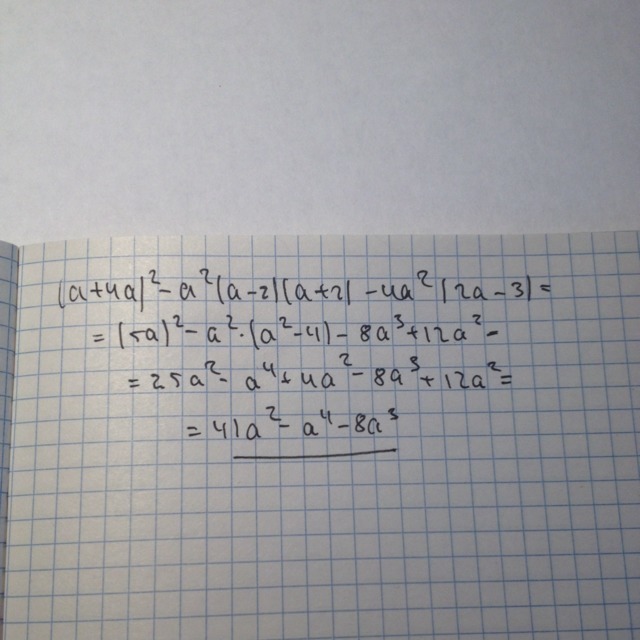 (a+4a)²-a²(a-2)(a+2)-4a²(2a-3)=
=(5a)²-a²·(a²-4)-8a³+12a²=
=25a²-a⁴+4a²-8a³+12a²=
=41a²-a⁴-8a³